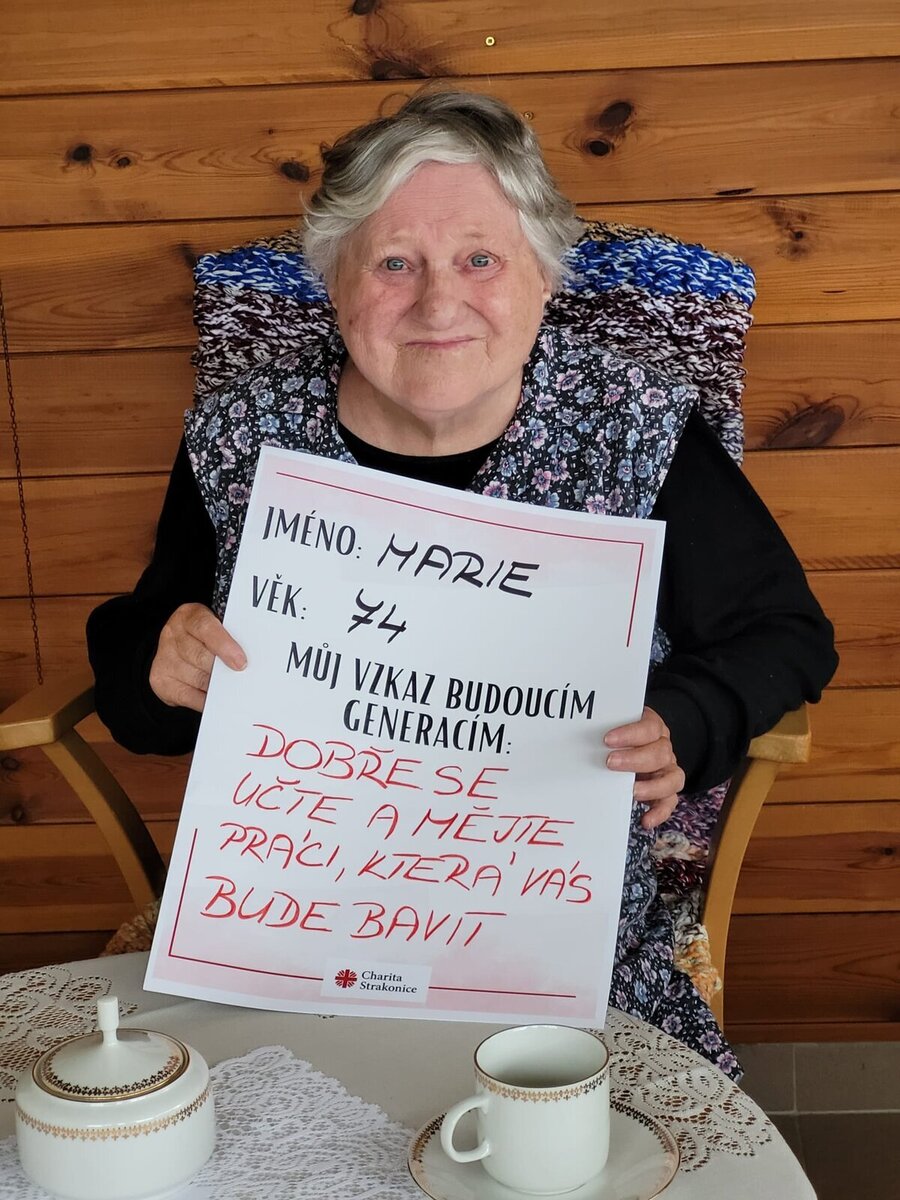 JMÉNO: MARIE
VĚK: 74
MŮJ VZKAZ BUDOUCÍM
GENERACÍM:
DOBŘE SE
UČTE A MĚJTE
PRÁCI, KTERÁ VÁS
BUDE BAVIT
Charita
Strakonice